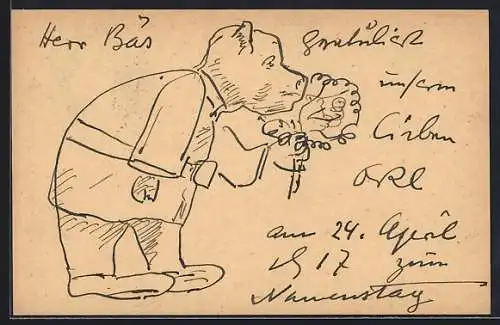 Herr Bäs gratuliert
unserm
lieben
OKL
am 24. April
17 zum
Namenstag